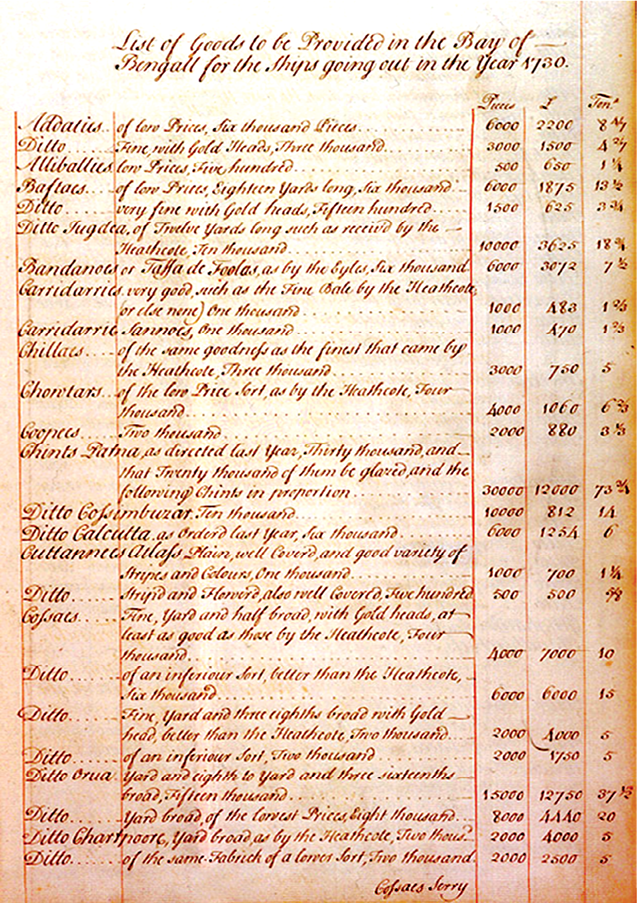 List of Goods to be Provided in the Bay of —
Bengall for the Ships going out in the Year 1730.
Pieces £ Tons
Addaties of low Prices, Six thousand Pieces 6000 2200 8 4/7
Ditto Fine, with Gold Heads, Three thousand 3000 1500 4 2/7
Alliballies low Prices, Five hundred 500 650 1 1/4
Baftaes of low Prices, Eighteen Yards long, Six thousand 6000 1875 13 1/2
Ditto very fine with Gold heads, Fifteen hundred 1500 625 3 3/4
Ditto Jugdea, of Twelve Yards long such as receiv'd by the —
Heathcote, Ten thousand 10000 3625 18 3/4
Bandanoes or Taffa de Foolas, as by the Eyles, Six thousand 6000 3072 7 1/2
Carridarries, very good, such as the Fine Bale by the Heathcote,
or else none) One thousand 1000 483 1 2/3
Carridarrie Sannoes, One thousand 1000 470 1 2/3
Chillaes of the same goodness as the finest that came by
the Heathcote, Three thousand 3000 750 5
Chowtars of the low Price Sort, as by the Heathcote, Four
thousand 4000 1060 6 2/3
Coopees Two thousand 2000 880 3 1/3
Chints Patna, as directed last Year, Thirty thousand, and
that Twenty thousand of them be glazed, and the
following Chints in proportion 30000 12000 73 3/4
Ditto Cossimbuzar, Ten thousand 10000 812 14
Ditto Calcutta, as Orderd last Year, Six thousand 6000 1254 6
Cuttannees Atlass Plain, well Coverd, and good variety of
Stripes and Colours, One thousand 1000 700 1 1/4
Ditto Strip'd and Flower'd, also well Covered, Five hundred 500 500 5/8
Cossaes Fine, Yard and half broad, with Gold heads, at
least as good as those by the Heathcote, Four
thousand 4000 7000 10
Ditto of an inferiour Sort, better than the Heathcote,
Six thousand 6000 6000 15
Ditto Fine, Yard and three eighths broad with Gold —
head, better than the Heathcote, Two thousand 2000 4000 5
Ditto of an inferiour Sort, Two thousand 2000 1750 5
Ditto Orua Yard and eighth to Yard and three sixteenths
broad, Fifteen thousand 15000 12750 37 1/2
Ditto Yard broad, of the lowest Prices, Eight thousand 8000 4440 20
Ditto Chartpoore, Yard broad, as by the Heathcote, Two thousd 2000 4000 5
Ditto of the same Fabrick of a lower Sort, Two thousand 2000 2500 5
Cossaes Serry